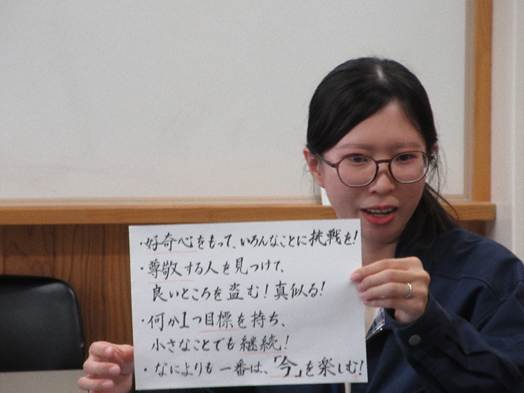 ・好奇心をもって、いろんなことに挑戦を!
・尊敬する人を見つけて、
良いところを盗む!真似る!
・何か1つ目標を持ち、
小さなことでも継続!
・なによりも一番は、「今」を楽しむ!